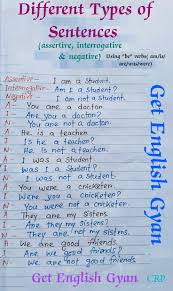 Different Types of
Sentences
(assertive, interrogative
& negative) Using "be" verbs( am/is/
are/was/were)
Assertive - I am a student.
Interrogative - Am I a student?
Negative - I am not a student.
A - You are a doctor.
I - Are you a doctor?
N - You are not a doctor.
A - He is a teacher
I - Is he a teacher?
N - He is not a teacher.
A - I was a student
I - Was I a student?
N - I was not a student
A - You were a cricketer.
I - Were you a cricketer?
N - You were not a cricketer.
A - They are my sisters.
I - Are they my sisters?
N - They are not my sisters.
A - We are good friends.
I - Are we good friends?
N - We are not good friends
Get English Gyan
Get English Gyan CRP